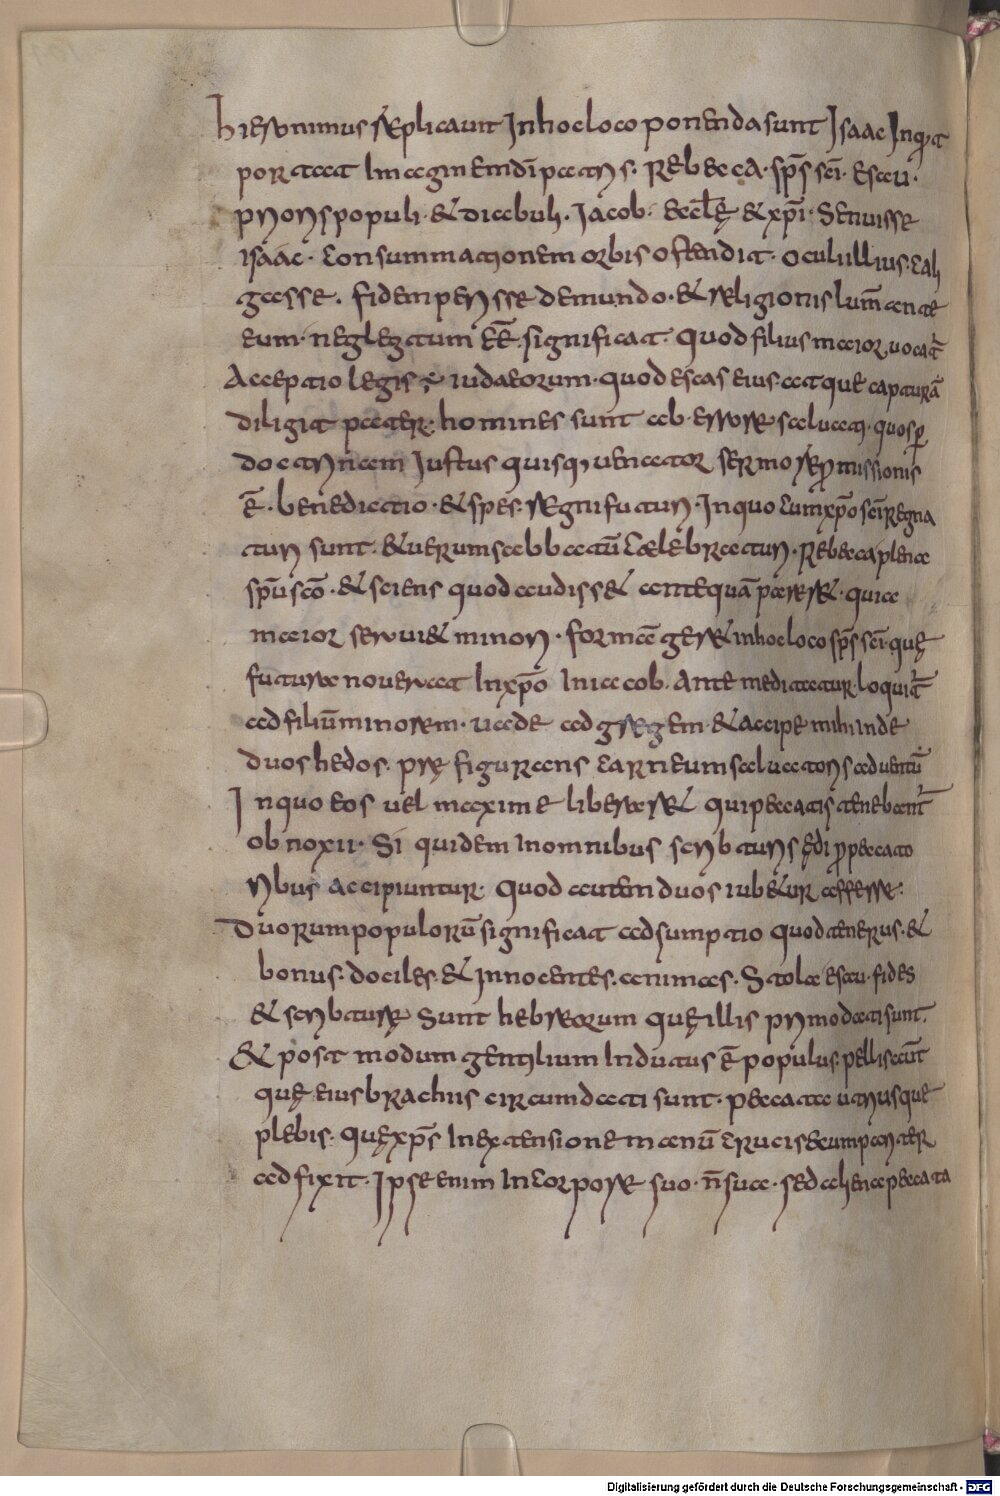 hieronimus replicauit In hoc loco ponenda sunt Isaac Inquit
portat imaginem di patris. Rebecca. sps sci. esau.
prioris populi. & diabuli. Iacob. eccle & xpi. Senuisse
isaac. consummationem orbis ostendit. oculi illius. cali
gasse. fidem perisse demundo. & religionis lum ante
eum. neglectum ee significat. Quod filius maior uocat
Acceptio legis e iudaeorum. quod escas eius. atque captura
diligit pater. homines sunt ab errore saluati. quos p
doctrinam Iustus quisq uenator sermo repmissionis
e. benedictio. & spes. regni futuri. In quo cum xpo sci regna
turi sunt. & uerum sabbatu caelebraturi. Rebecca plena
spu sco. & sciens quod audiss& antequa parer&. quia
maior seruui& minori. forma ger& in hoc loco sps sci. que
futura nouerat In xpo In iacob. ante meditatur. loquit
ad filiu minorem. uade ad gregem & accipe mihi inde
duos hedos. pre figurans carneum saluatoris aduentu
In quo eos uel maxime liberar& qui peccatis tenebant
obnoxii. Si quidem In omnibus scribturis edi p peccato
ribus accipiuntur. Quod autem duos iub&ur afferre.
Duorum populoru significat adsumptio Quod teneros. &
bonus. dociles. & Innocentes. animas. Stola esau. fides
& scribture Sunt hebreorum que illis primo dati sunt.
& post modum gentilium Inductus e populus. pellis aut
que eius brachiis circumdati sunt. peccata utriusque
plebis. que xps In extensione manu crucis secum pariter
adfixit. Ipse enim In corpore suo. n sua. sed aliena peccata
Digitalisierung gefördert durch die Deutsche Forschungsgemeinschaft - DFG